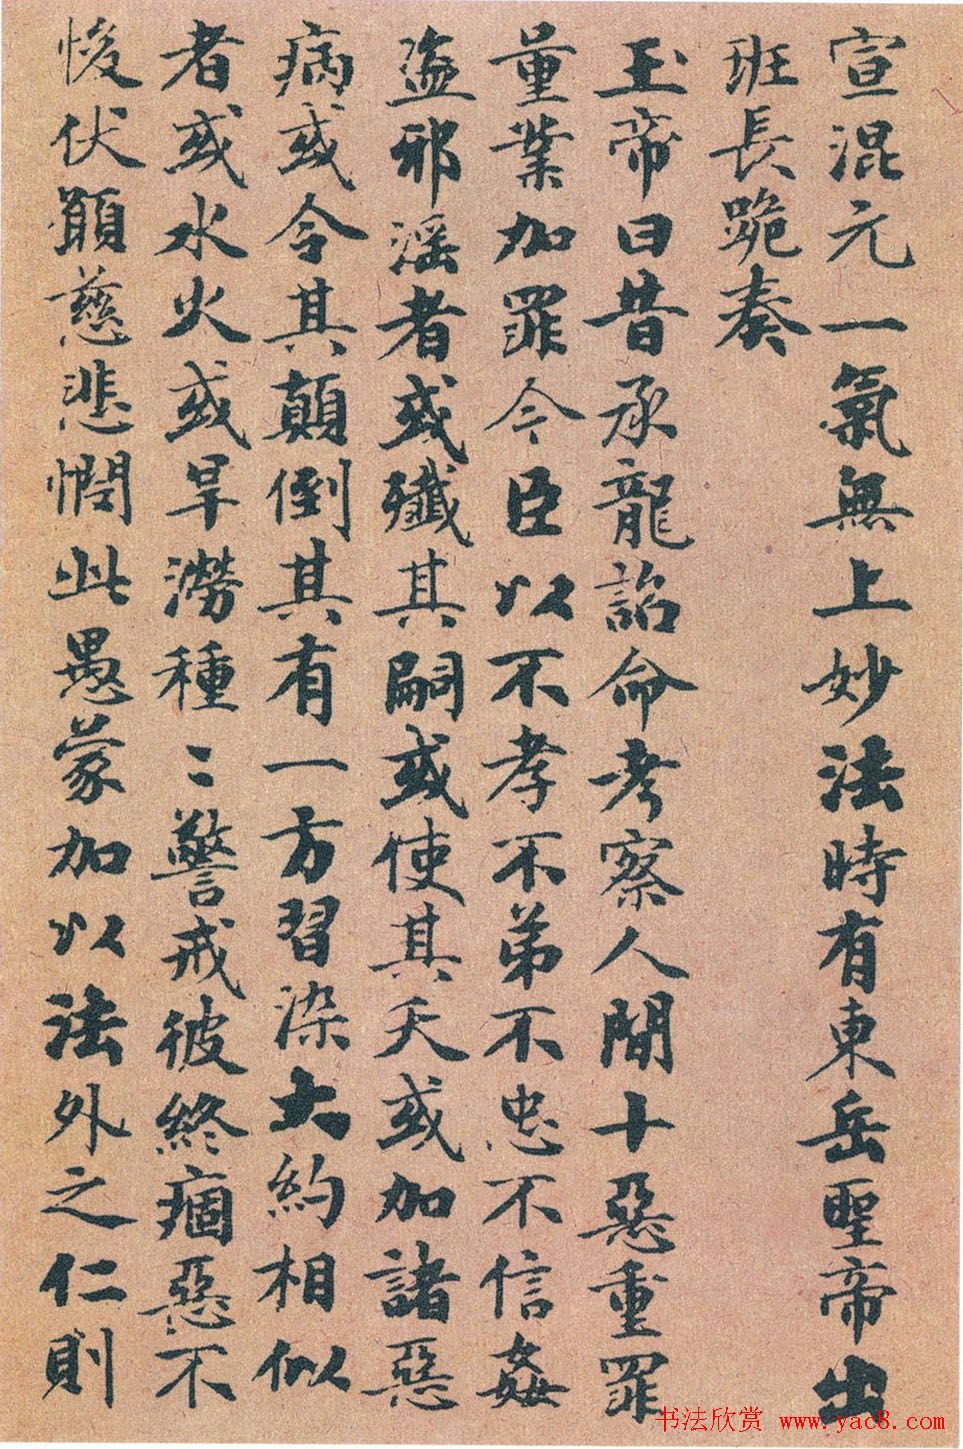 宣混元一氣無上妙法時有東岳聖帝出
班長跪奏
玉帝曰昔承龍詔命考察人間十惡重罪
量業加罪今臣以不孝不弟不忠不信姦
盗邪淫者或殱其嗣或使其夭或加諸惡
病或令其顛倒其有一方習染大約相似
者或水火或旱澇種〻警戒彼終痼惡不
悛伏願慈悲憫此愚蒙加以法外之仁則
书法欣赏 www.yac8.com